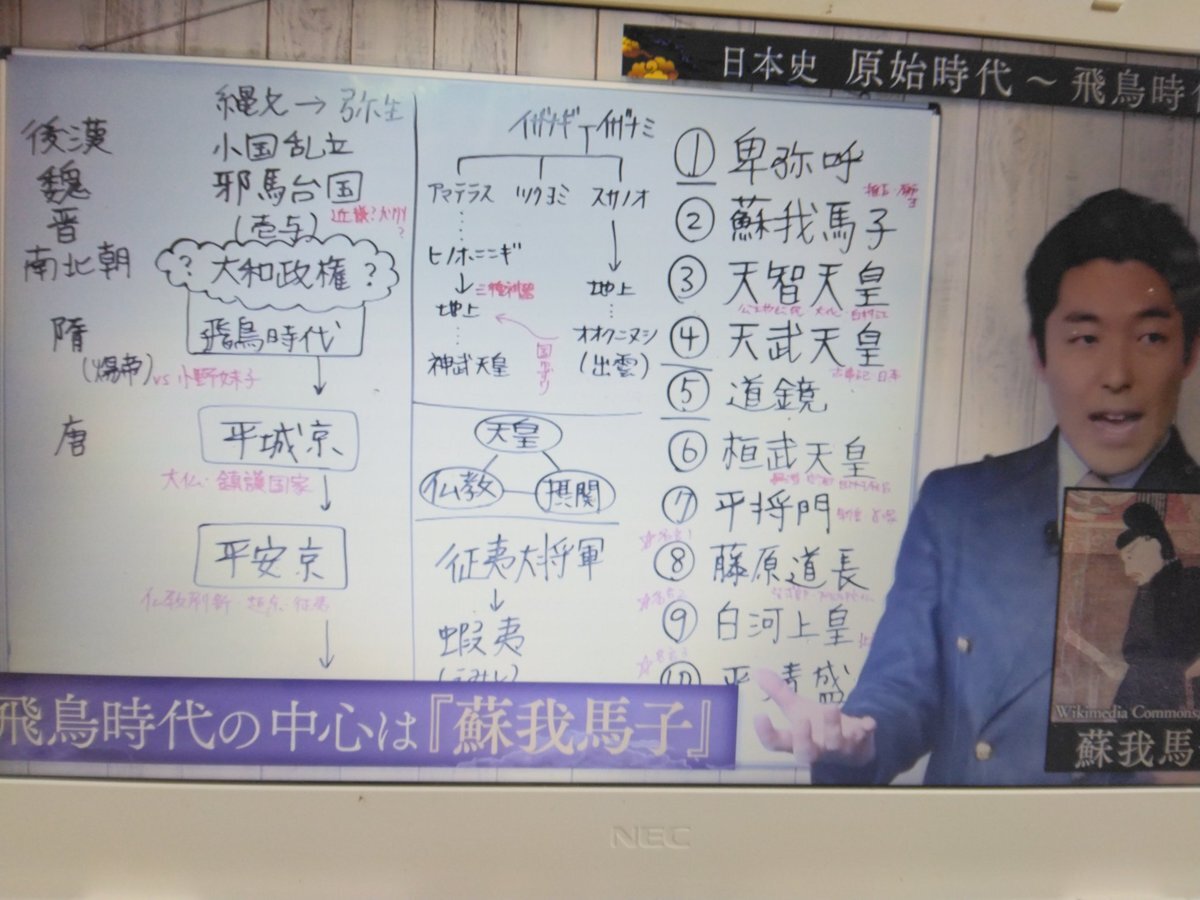 日本史 原始時代～飛鳥時
縄文→弥生
後漢
小国乱立
魏
邪馬台国
晋
(壱与)
近畿?
南北朝
?大和政権?
隋
飛鳥時代
(煬帝)
vs 小野妹子
唐
平城京
大仏・鎮護国家
平安京
仏教刷新
イザナギ イザナミ
アマテラス ツクヨミ スサノオ
ヒノホニニギ
三種神器
地上
地上
国ゆずり
神武天皇
オオクニヌシ
(出雲)
天皇
仏教
摂関
征夷大将軍
蝦夷
(えみし)
① 卑弥呼
② 蘇我馬子
③ 天智天皇
④ 天武天皇
古事記・日本
⑤ 道鏡
⑥ 桓武天皇
⑦ 平将門
⑧ 藤原道長
⑨ 白河上皇
⑩ 平清盛
飛鳥時代の中心は『蘇我馬子』
Wikimedia Commons
蘇我馬
NEC